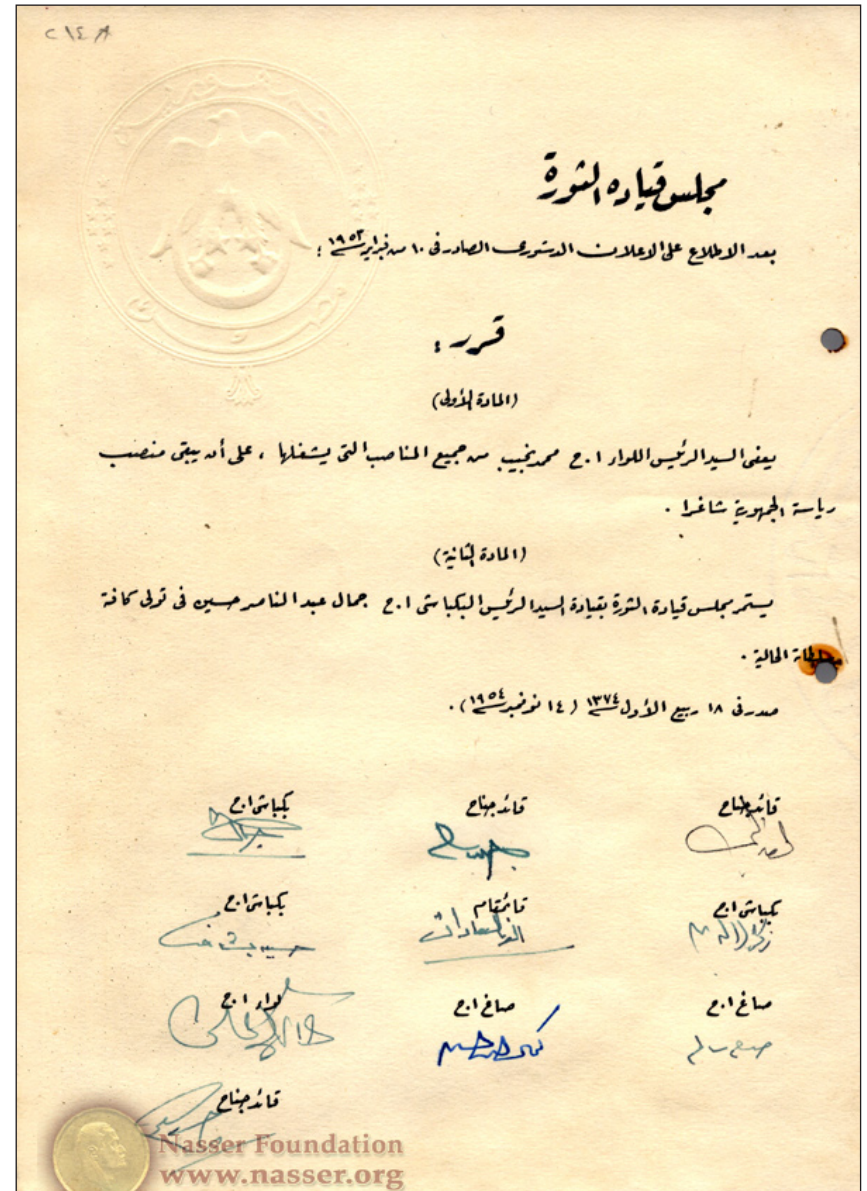 ٢١٤٨
جمهورية
مصر
مجلس قيادة الثورة
بعد الاطلاع على الاعلان الدستورى الصادر فى ١٠ من فبراير سنة ١٩٥٣ ؛
قرر :
(المادة الأولى)
يعفى السيد الرئيس اللواء ا.ح محمد نجيب من جميع المناصب التى يشغلها ، على أن يبقى منصب
رياسة الجمهورية شاغرا .
(المادة الثانية)
يستمر مجلس قيادة الثورة بقيادة السيد الرئيس البكباشى ا.ح جمال عبد الناصر حسين فى تولى كافة
الحالية .
صدر فى ١٨ ربيع الأول سنة ١٣٧٤ ( ١٤ نوفمبر سنة ١٩٥٤ ) .
قائد جناح قائد جناح بكباشى ا.ح
بكباشى ا.ح قائمقام بكباشى ا.ح
أنور السادات
صاغ ا.ح صاغ ا.ح لواء ا.ح
قائد جناح
Nasser Foundation
www.nasser.org